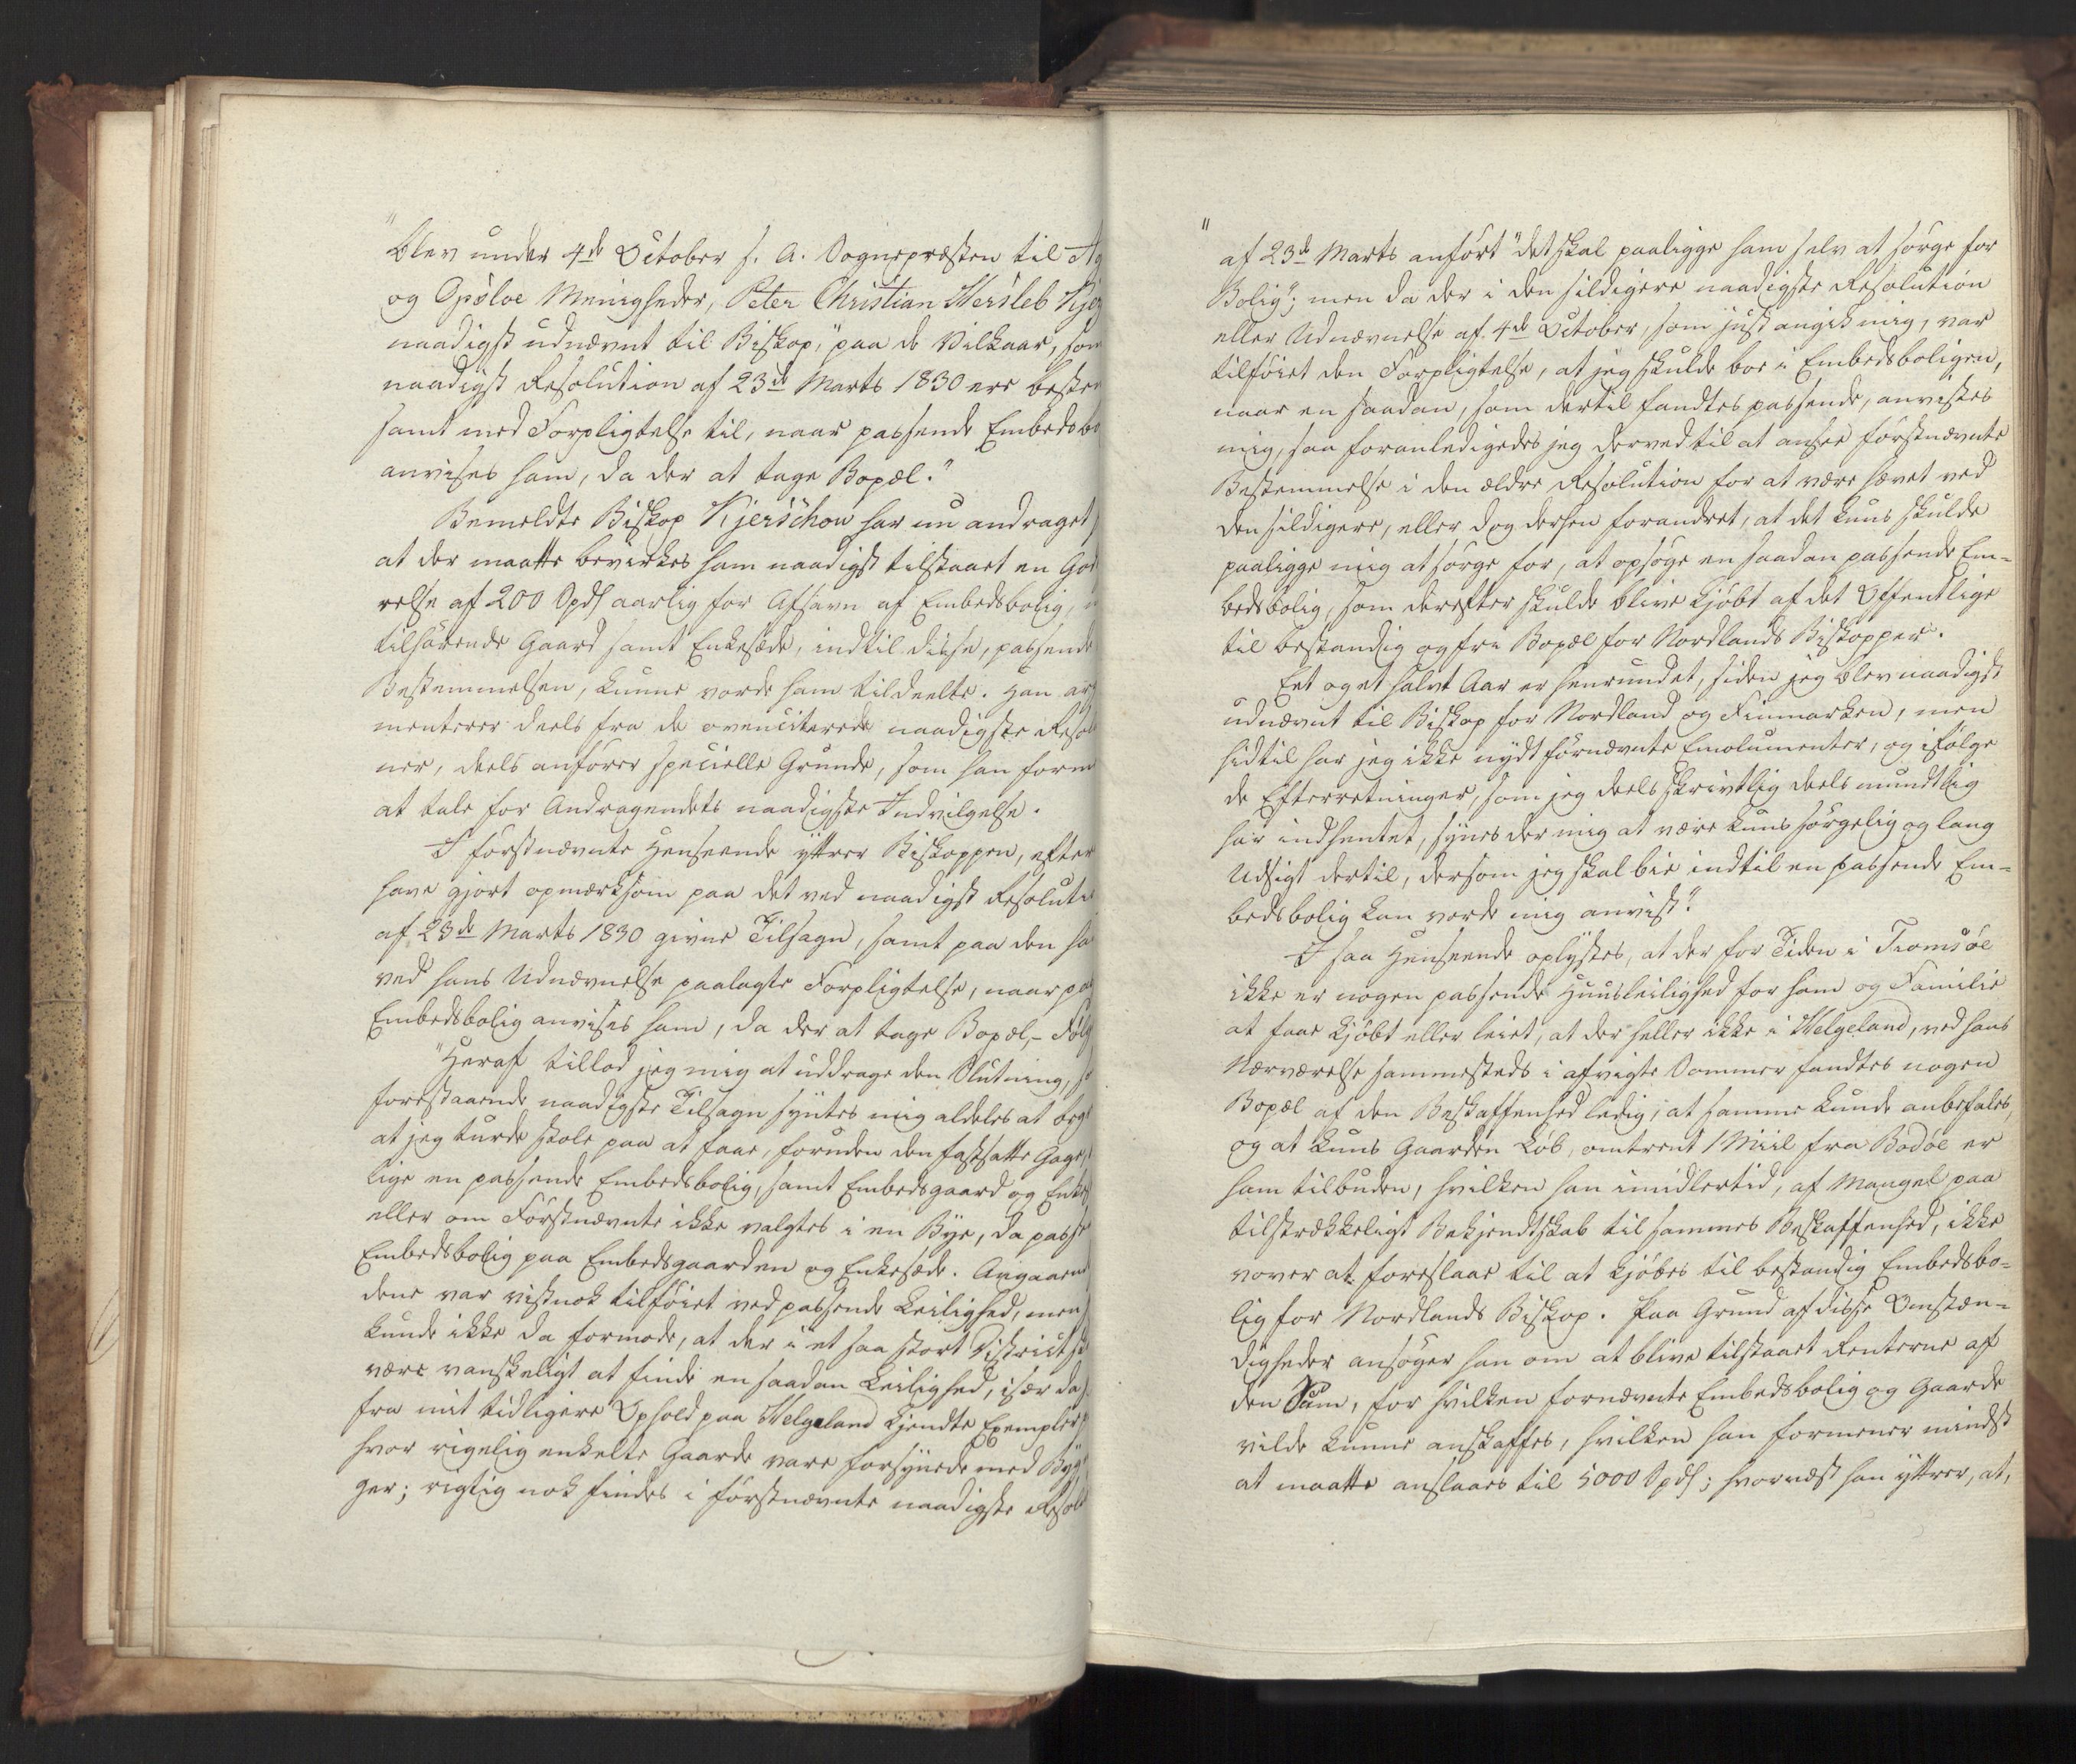 "
blev under 4de October s. A. Sognepræsten til
og Opsloe Menigheder, Peter Christian Hersleb Kjer
naadigst udnævnt til Biskop, "paa de Vilkaar, som
naadigst Resolution af 23de Marts 1830 ere bestem
samt med Forpligtelse til, naar passende Embedsbo
anvises ham, da der at tage Bopæl."
Bemeldte Biskop Kjerschow har nu andraget
at der maatte bevirkes ham naadigst tilstaaet en God
relse af 200 Spdl aarlig for Afsavn af Embedsbolig,
tilhørende Gaard samt Enkesæde, indtil disse, passende
Bestemmelsen, kunne vorde ham tildeelte. Han ar
menterer deels fra de ovenciterede naadigste Resol
ner, deels anfører specielle Grunde, som han form
at tale for Andragendets naadigste Indvilgelse.
I førstnævnte Henseende yttrer Biskoppen, efter
have gjort opmærksom paa det ved naadigst Resoluti
af 23de Marts 1830 givne Tilsagn, samt paa den ha
ved hans Udnævnelse paalagte Forpligtelse, naar pas
Embedsbolig anvises ham, da der at tage Bopæl, - Føl
"Heraf tillod jeg mig at uddrage den Slutning,
forestaaende naadigste Tilsagn syntes mig aldeles at beg
at jeg turde stole paa at faae, foruden den fastsatte Gage,
lige en passende Embedsbolig, samt Embedsgaard og Enkes
eller om Førstnævnte ikke valgtes i en Bye, da passe
Embedsbolig paa Embedsgaarden og Enkesæde. Angaaend
dene var vistnok tilføiet ved passende Leilighed, men
kunde ikke da formode, at der i et saa stort District sk
være vanskeligt at finde en saadan Leilighed, især da
fra mit tidligere Ophold paa Helgeland kjendte Exempler
hvor rigelig enkelte Gaarde vare forsynede med Byg
ger; rigtig nok findes i førstnævnte naadigste Resol
"
af 23de Marts anført "det skal paaligge ham selv at sørge for
Bolig"; men da der i den sildigere naadigste Resolution
eller Udnævnelse af 4de October, som just angik mig, var
tilføiet den Forpligtelse, at jeg skulde boe i Embedsboligen,
naar en saadan, som dertil fandtes passende, anvistes
mig, saa foranledigedes jeg derved til at ansee førstnævnte
Bestemmelse i den ældre Resolution for at være hævet ved
den sildigere, eller dog derhen forandret, at det kuns skulde
paaligge mig at sørge for, at opsøge en saadan passende Em-
bedsbolig, som derefter skulde blive kjøbt af det Offentlige
til bestandig og fri Bopæl for Nordlands Biskopper.
Eet og et halvt Aar er henrundet, siden jeg blev naadigst
udnævnt til Biskop for Nordland og Finmarken, men
hidtil har jeg ikke nydt førnævnte Emolumenter, og ifølge
de Efterretninger, som jeg deels skrivtlig deels mundtlig
har indhentet, synes der mig at være kuns sørgelig og lang
Udsigt dertil, dersom jeg skal bie indtil en passende Em-
bedsbolig kan vorde mig anvist."
I saa Henseende oplystes, at der for Tiden i Tromsøe
ikke er nogen passende Huusleilighed for ham og Familie
at faae kjøbt eller leiet, at der heller ikke i Helgeland, ved hans
Nærværelse sammesteds i afvigte Sommer fandtes nogen
Bopæl af den Beskaffenhed ledig, at samme kunde anbefales,
og at kuns Gaarden Løb, omtrent 1 Miil fra Bodøe er
ham tilbuden, hvilken han imidlertid, af Mangel paa
tilstrækkeligt Bekjendtskab til sammes Beskaffenhed, ikke
vover at foreslaae til at kjøbes til bestandig Embedsbo-
lig for Nordlands Biskop. Paa Grund af disse Omstæn-
digheder ansøger han om at blive tilstaaet Renterne af
den Sum, for hvilken fornævnte Embedsbolig og Gaarde
vilde kunne anskaffes, hvilken han formener mindst
at maatte anslaaes til 5000 Spdl; hvornæst han yttrer, at,